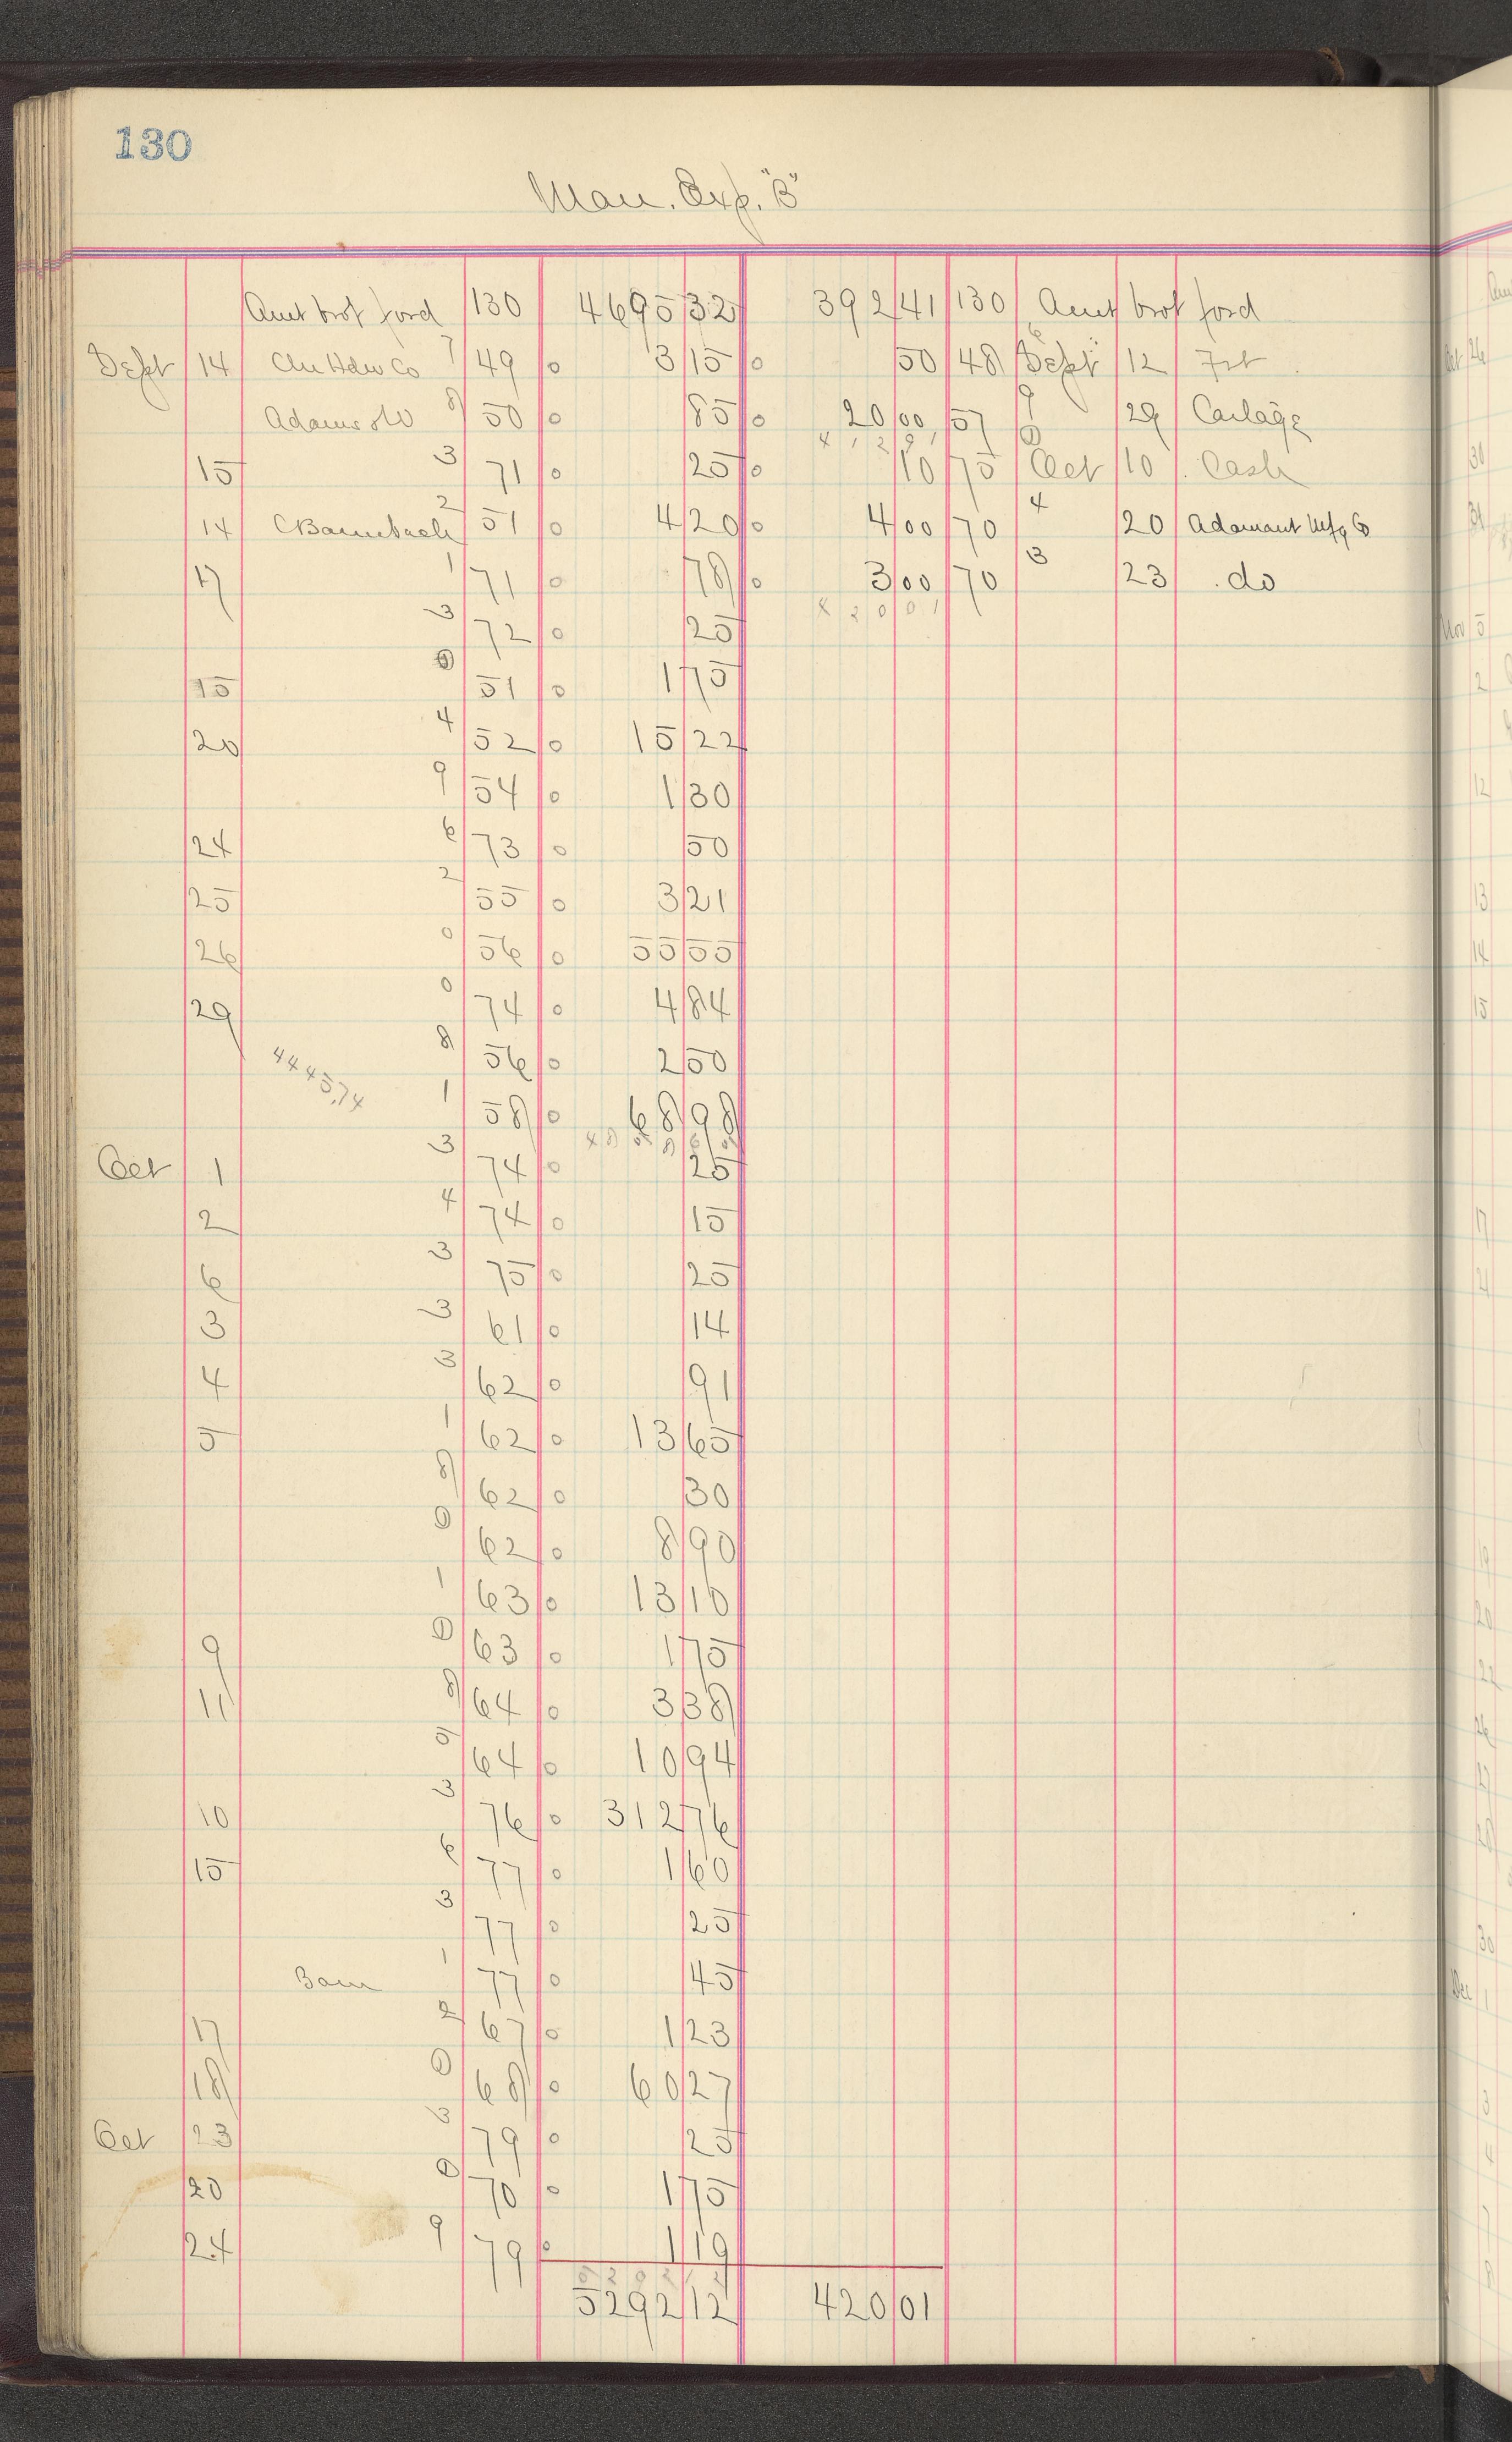 130
Man. Exp. "B"
Amt brot ford 130 4695 32 392 41 130 Amt brot ford
Sept 14 Hdw Co 7 49 0 3 15 0 50 48 6 Sept 12 Frt
Adams 8 50 0 85 0 20 00 57 9 29 Cartage
4 1 2 9 1
15 3 71 0 25 0 10 75 0 Oct 10 Cash
14 CBaumbach 2 51 0 4 20 0 4 00 70 4 20 Adamant Mfg Co
17 1 71 0 78 0 3 00 70 3 23 do
4 2 0 0 1
3 72 0 25
15 0 51 0 1 75
20 4 52 0 15 22
9 54 0 1 30
24 6 73 0 50
25 2 55 0 3 21
26 0 56 0 55 55
29 0 74 0 4 84
8 56 0 2 50
4445.74
1 58 0 68 98
Oct 1 3 74 0 25
2 4 74 0 15
6 3 75 0 25
3 3 61 0 14
4 3 62 0 91
5 1 62 0 13 65
8 62 0 30
0 62 0 8 90
1 63 0 13 10
9 0 63 0 1 75
11 8 64 0 3 38
64 0 10 94
10 3 76 0 312 76
15 6 77 0 1 60
3 77 0 25
Bam 1 77 0 45
17 2 67 0 1 23
18 0 68 0 60 27
Oct 23 3 79 0 25
20 0 70 0 1 75
24 9 79 0 1 19
5292 12 420 01